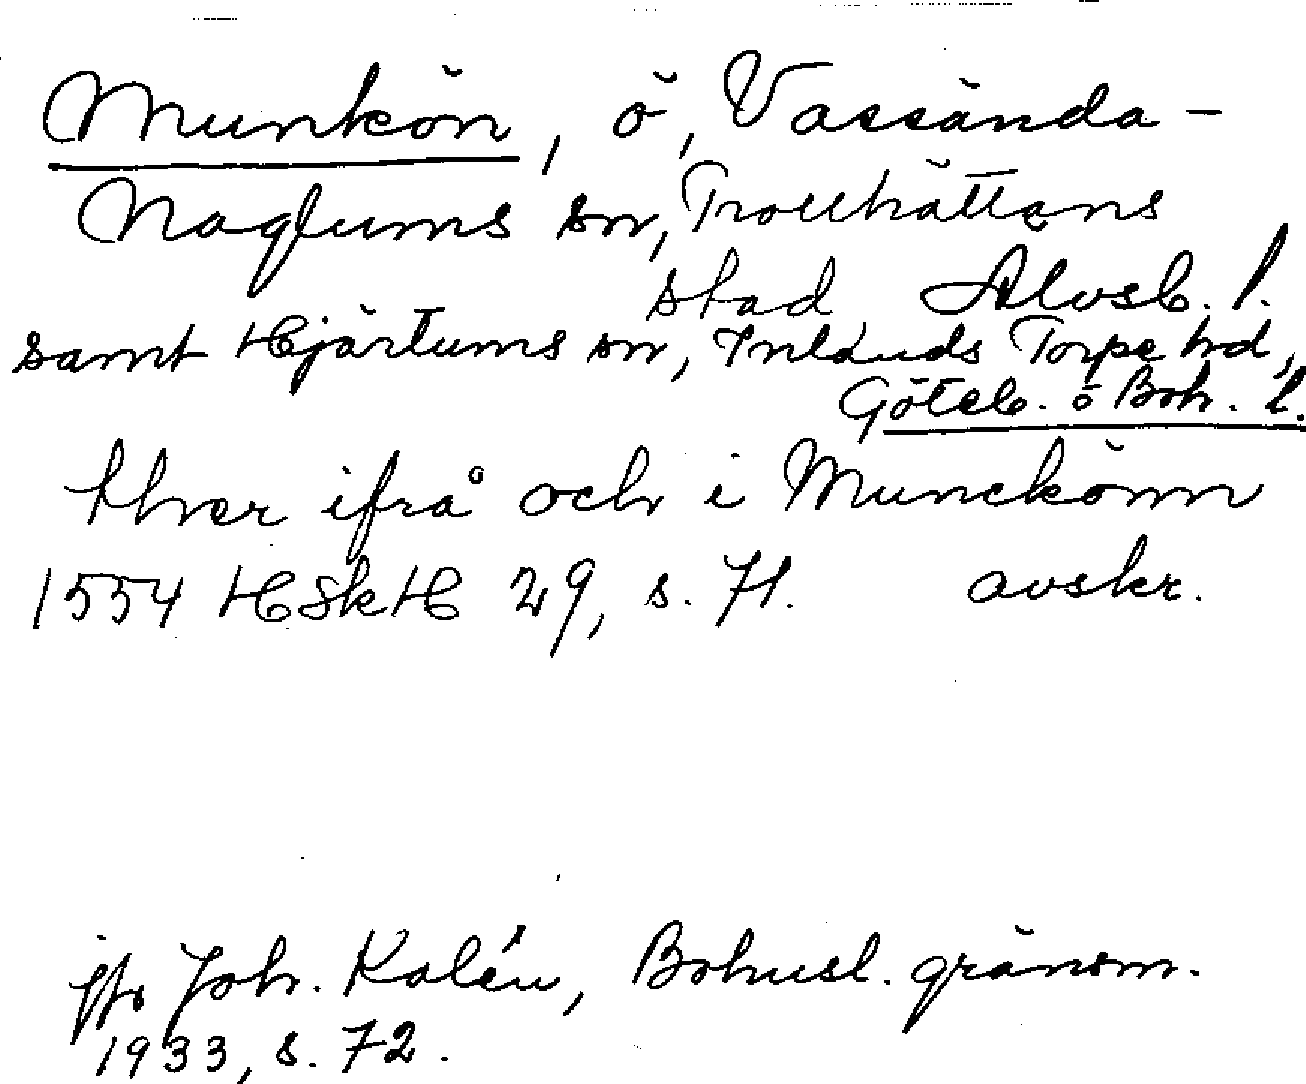 Munkön, ö, Vassända-
Naglums sn, Trollhättans
stad Älvsb. l.
samt Hjärtums sn, Inlands Torpe hd,
Göteb. o Boh. l.
thver ifrå och i Munckönn
1554 HSkH 29, s. 71. avskr.
jfr Joh. Kalén, Bohusl. gränsm.
1933, s. 72.